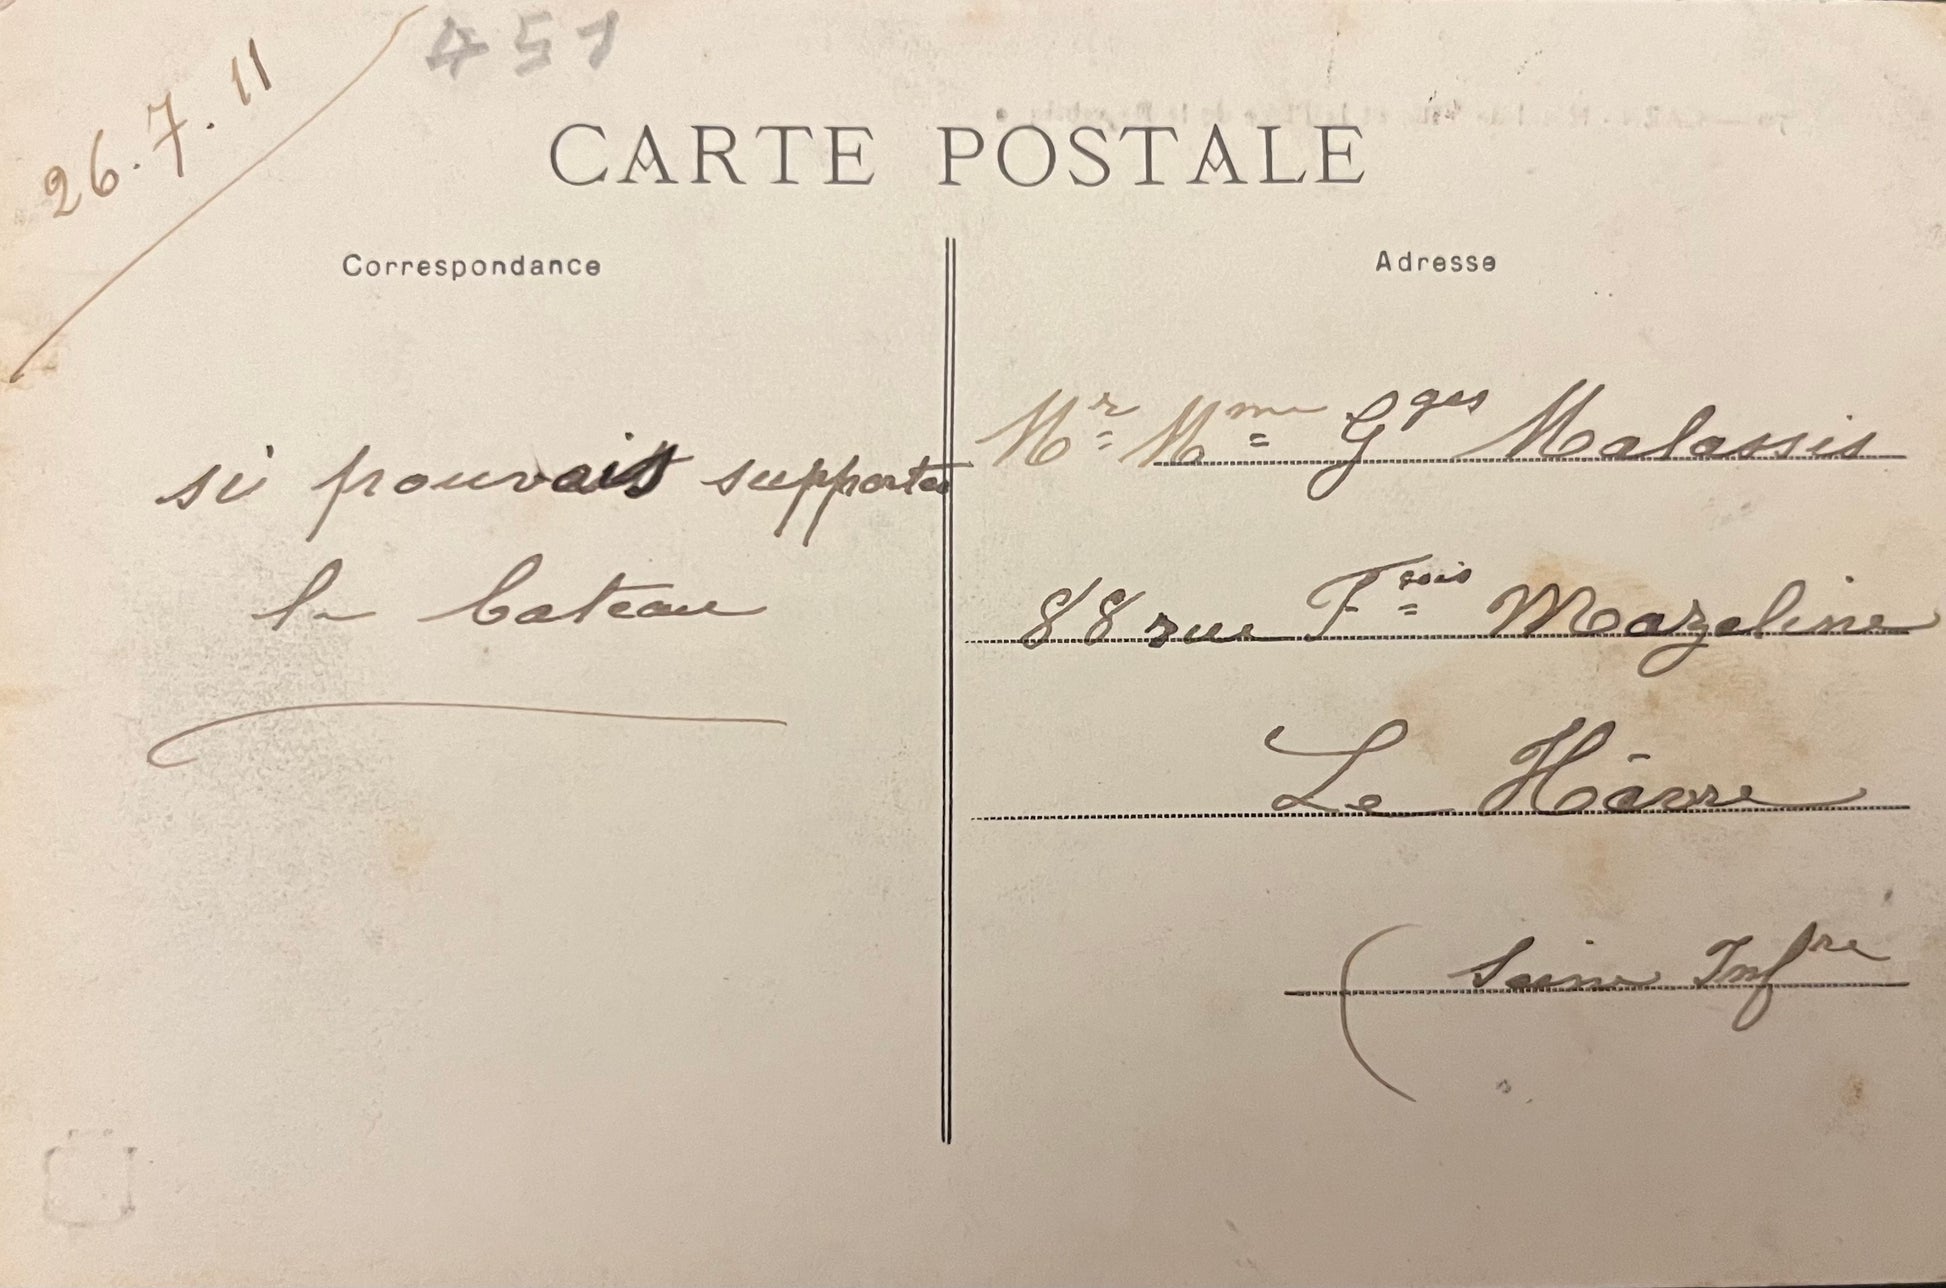 26.7.11
451
CARTE POSTALE
Correspondance
Adresse
si pouvais supporter
le bateau
Mr Mme Gges Malassis
88 rue Fsois Mazeline
Le Hâvre
(Seine Infre